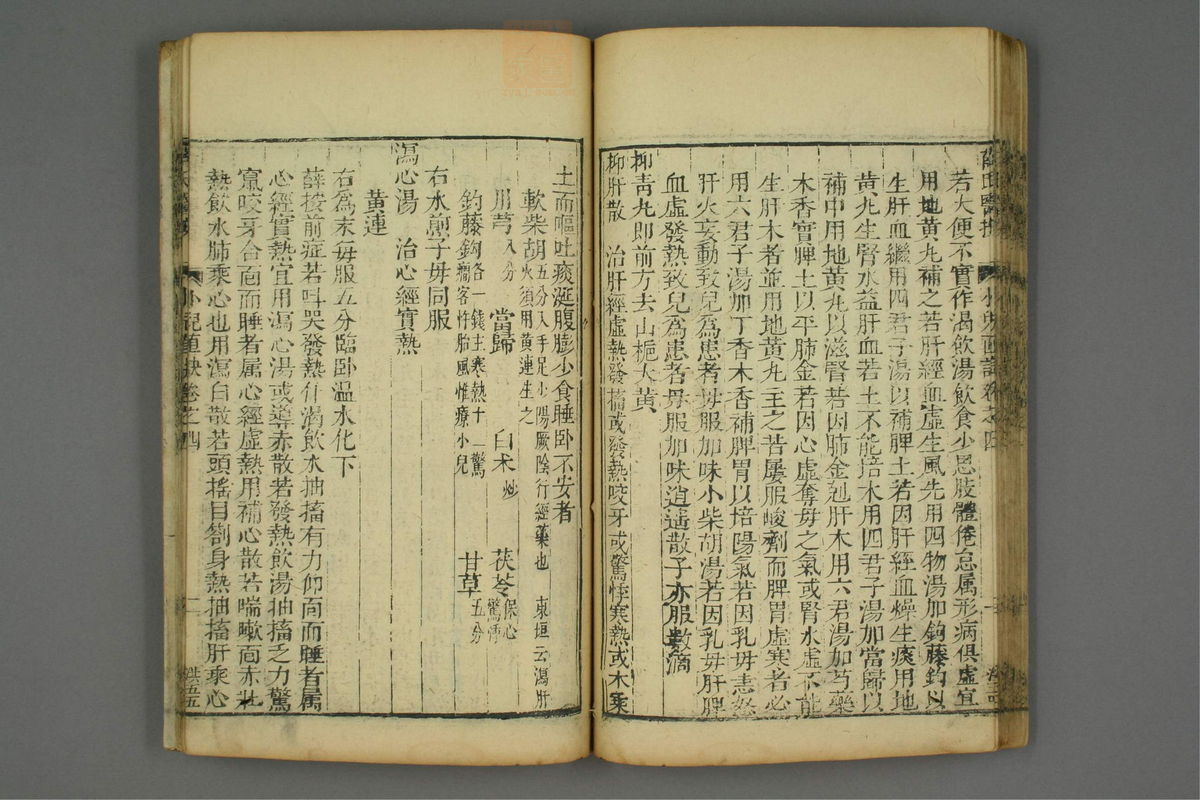 薛氏醫按
若大便不實作渴飲湯飲食少思肢體倦怠属形病俱虛宜
用地黄丸補之若肝經血虛生風先用四物湯加鈎藤鈎以
生肝血繼用四君子湯以補脾土若因肝經血燥生痰用地
黄丸生腎水益肝血若土不能培木用四君子湯加當歸以
補中用地黄丸以滋腎若因肺金剋肝木用六君湯加芍藥
木香實脾土以平肺金若因心虛奪母之氣或腎水虛不能
生肝木者並用地黄丸主之若屢服峻劑而脾胃虛寒者必
用六君子湯加丁香木香補脾胃以培陽氣若因乳母恚怒
肝火妄動致兒為患者母服加味小柴胡湯若因乳母肝脾
血虛發熱致兒為患者母服加味逍遥散子亦服數滴
抑青丸即前方去山梔大黄
抑肝散 治肝經虛熱發搐或發熱咬牙或驚悸寒熱或木乘
土而嘔吐痰涎腹膨少食睡卧不安者
軟柴胡五分入手足少陽厥陰行經藥也 東垣云瀉肝火須用黄連生之
川芎八分 當歸 白术炒 茯苓保心驚悸
鈎藤鈎各一錢主寒熱十二驚癎客忤胎風惟療小兒 甘草五分
右水煎子母同服
瀉心湯 治心經實熱
黄連
右為末每服五分臨卧温水化下
薛按前症若叫哭發熱作渴飲水抽搐有力仰面而睡者属
心經實熱宜用瀉心湯或導赤散若發熱飲湯抽搐乏力驚
竄咬牙合面而睡者属心經虛熱用補心散若喘嗽面赤壯
熱飲水肺乘心也用瀉白散若頭搖目劄身熱抽搐肝乘心
小兒直訣卷之四